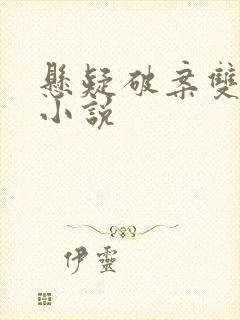 懸疑破案雙
小說
伊靈